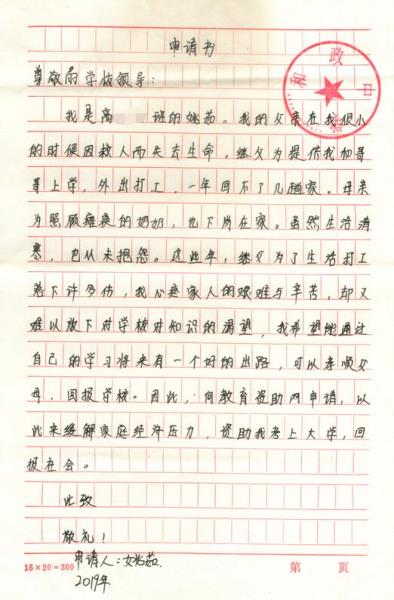 申请书
尊敬的学校领导：
我是高 班的姚茹。我的父亲在我很小
的时候因救人而失去生命。继父为提供我和哥
哥上学，外出打工，一年回不了几趟家。母亲
为照顾瘫痪的奶奶，也下岗在家。虽然生活清
寒，也从未抱怨。这些年，继父为了生活打工
落下许多伤，我心疼家人的艰难与辛苦，却又
难以放下对学校对知识的渴望，我希望能通过
自己的学习将来有一个好的出路，可以孝顺父
母，回报学校。因此，向教育资助网申请，以
此来缓解家庭经济压力，资助我考上大学，回
报社会。
此致
敬礼！
申请人：姚茹
2019年
15×20=300 第 页
和政中